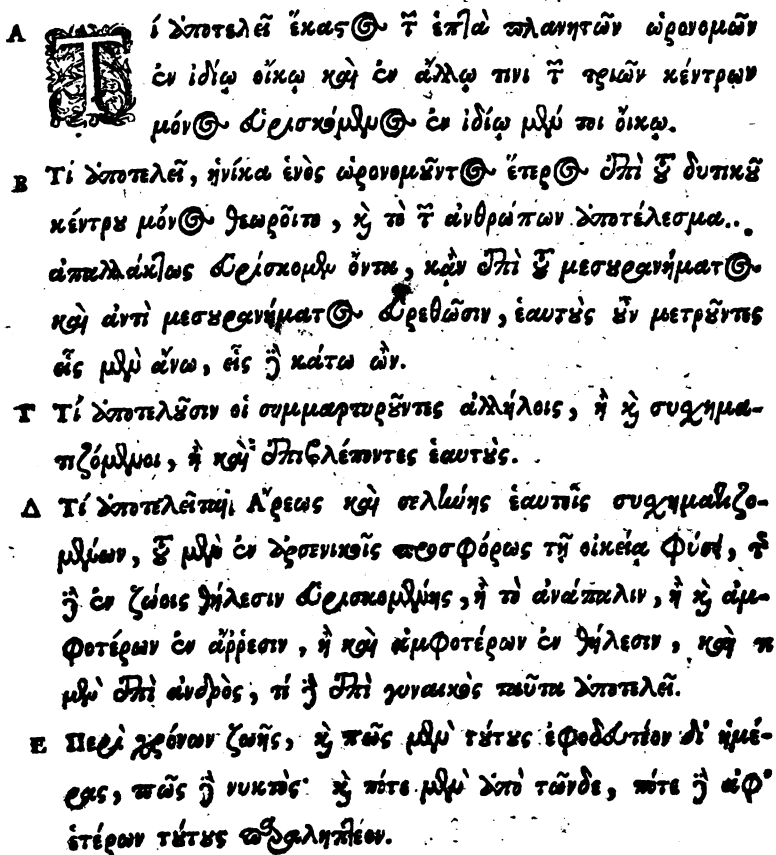 Α Τί ἀποτελεῖ ἕκαστος τῶν ἑπτὰ πλανητῶν ὡρονομῶν
ἐν ἰδίῳ οἴκῳ καὶ ἐν ἄλλῳ τινι τῶν τριῶν κέντρων
μόνος εὑρισκόμενος ἐν ἰδίῳ μέν τοι οἴκῳ.
Β Τί ἀποτελεῖ, ἡνίκα ἑνὸς ὡρονομοῦντος ἕτερος ἐπὶ τοῦ δυτικοῦ
κέντρου μόνος θεωροῖτο, καὶ τὸ τῶν ἀνθρώπων ἀποτέλεσμα..
ἀπαλλάκτως εὑρίσκομεν ὄντα, κἂν ἐπὶ τοῦ μεσουρανήματος
καὶ ἀντὶ μεσουρανήματος εὑρεθῶσιν, ἑαυτοὺς οὖν μετροῦντες
εἷς μὲν ἄνω, εἷς δὲ κάτω ὢν.
Γ Τί ἀποτελοῦσιν οἱ συμμαρτυροῦντες ἀλλήλοις, ἢ καὶ συσχημα-
τιζόμενοι, ἢ καὶ ἐπιβλέποντες ἑαυτοὺς.
Δ Τί ἀποτελεῖται Ἄρεως καὶ σελήνης ἑαυτοῖς συσχηματιζο-
μένων, τοῦ μὲν ἐν ἀρσενικοῖς προσφόρως τῇ οἰκείᾳ φύσει, τῆς
δὲ ἐν ζώοις θήλεσιν εὑρισκομένης, ἢ τὸ ἀνάπαλιν, ἢ καὶ ἀμ-
φοτέρων ἐν ἄῤῥεσιν, ἢ καὶ ἀμφοτέρων ἐν θήλεσιν, καὶ τί
μὲν ἐπὶ ἀνδρὸς, τί δὲ ἐπὶ γυναικὸς ταῦτα ἀποτελεῖ.
Ε Περὶ χρόνων ζωῆς, καὶ πῶς μὲν τούτους ἐφοδευτέον δι' ἡμέ-
ρας, πῶς δὲ νυκτὸς· καὶ πότε μὲν ἀπὸ τῶνδε, πότε δὲ ἀφ'
ἑτέρων τούτους παραληπτέον.